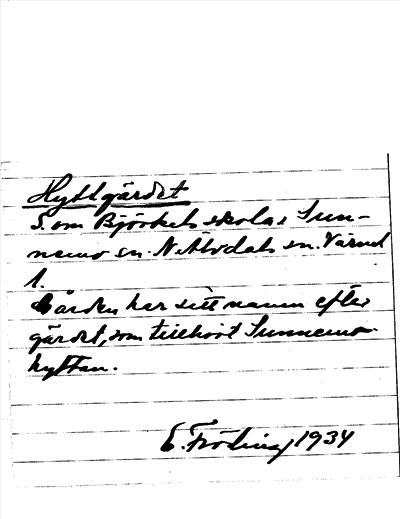 Hyttgärdet
S. om Björkets skola i Sun-
nemo sn. Väruml
1.
Gården har sitt namn efter
gärdet, som tillhört Sunnemo-
hyttan.
E. Fröding 1934